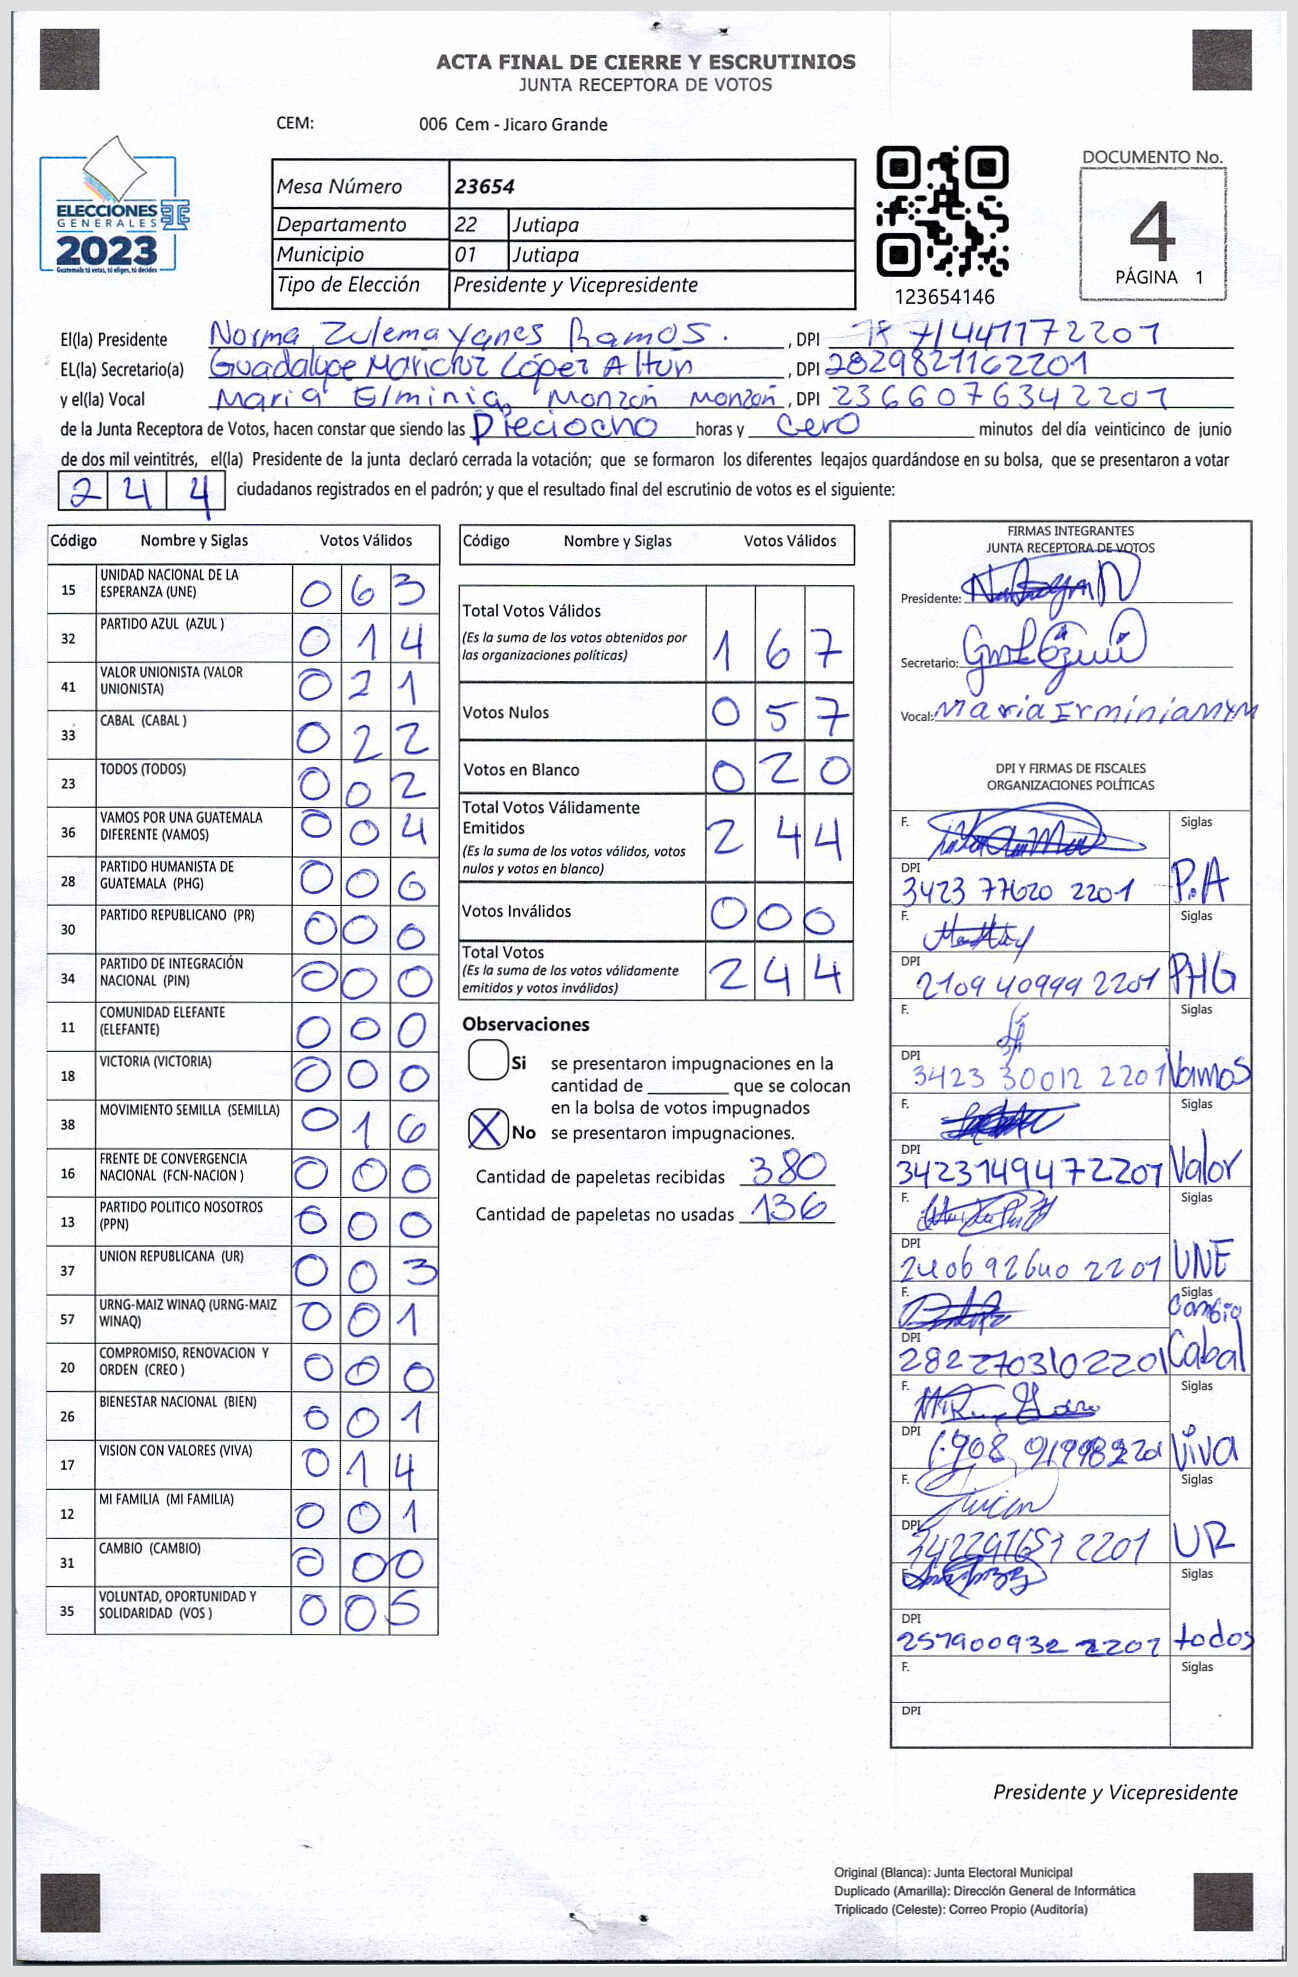 ACTA FINAL DE CIERRE Y ESCRUTINIOS
JUNTA RECEPTORA DE VOTOS
CEM: 006 Cem - Jicaro Grande
ELECCIONES
GENERALES
2023
Guatemala tú votas, tú eliges, tú decides
Mesa Número 23654
Departamento 22 Jutiapa
Municipio 01 Jutiapa
Tipo de Elección Presidente y Vicepresidente
123654146
DOCUMENTO No.
4
PÁGINA 1
El(la) Presidente Norma Zulema Yanes Ramos. , DPI 1871441172201
EL(la) Secretario(a) Guadalupe López , DPI 2829821162201
y el(la) Vocal Maria Elminia Monzón Monzón , DPI 2366076342201
de la Junta Receptora de Votos, hacen constar que siendo las Dieciocho horas y cero minutos del día veinticinco de junio
de dos mil veintitrés, el(la) Presidente de la junta declaró cerrada la votación; que se formaron los diferentes legajos guardándose en su bolsa, que se presentaron a votar
244 ciudadanos registrados en el padrón; y que el resultado final del escrutinio de votos es el siguiente:
Código Nombre y Siglas Votos Válidos
15 UNIDAD NACIONAL DE LA ESPERANZA (UNE) 063
32 PARTIDO AZUL (AZUL ) 014
41 VALOR UNIONISTA (VALOR UNIONISTA) 021
33 CABAL (CABAL ) 022
23 TODOS (TODOS) 002
36 VAMOS POR UNA GUATEMALA DIFERENTE (VAMOS) 004
28 PARTIDO HUMANISTA DE GUATEMALA (PHG) 006
30 PARTIDO REPUBLICANO (PR) 000
34 PARTIDO DE INTEGRACIÓN NACIONAL (PIN) 000
11 COMUNIDAD ELEFANTE (ELEFANTE) 000
18 VICTORIA (VICTORIA) 000
38 MOVIMIENTO SEMILLA (SEMILLA) 016
16 FRENTE DE CONVERGENCIA NACIONAL (FCN-NACION ) 000
13 PARTIDO POLITICO NOSOTROS (PPN) 000
37 UNION REPUBLICANA (UR) 003
57 URNG-MAIZ WINAQ (URNG-MAIZ WINAQ) 001
20 COMPROMISO, RENOVACION Y ORDEN (CREO ) 000
26 BIENESTAR NACIONAL (BIEN) 001
17 VISION CON VALORES (VIVA) 014
12 MI FAMILIA (MI FAMILIA) 001
31 CAMBIO (CAMBIO) 000
35 VOLUNTAD, OPORTUNIDAD Y SOLIDARIDAD (VOS ) 005
Código Nombre y Siglas Votos Válidos
Total Votos Válidos 167
(Es la suma de los votos obtenidos por
las organizaciones políticas)
Votos Nulos 057
Votos en Blanco 020
Total Votos Válidamente
Emitidos 244
(Es la suma de los votos válidos, votos
nulos y votos en blanco)
Votos Inválidos 000
Total Votos 244
(Es la suma de los votos válidamente
emitidos y votos inválidos)
Observaciones
Si se presentaron impugnaciones en la
cantidad de ________ que se colocan
en la bolsa de votos impugnados
X No se presentaron impugnaciones.
Cantidad de papeletas recibidas 380
Cantidad de papeletas no usadas 136
FIRMAS INTEGRANTES
JUNTA RECEPTORA DE VOTOS
Presidente:
Secretario:
Vocal: Maria Erminia MM
DPI Y FIRMAS DE FISCALES
ORGANIZACIONES POLÍTICAS
F. Siglas
DPI 3423 77620 2201 P.A
F. Siglas
DPI 2109 40999 2201 PHG
F. Siglas
DPI 3423 30012 2201 Vamos
F. Siglas
DPI 3423149472201 Valor
F. Siglas
DPI 2406 92640 2201 UNE
F. Siglas
Cambio
DPI 2822703102201 Cabal
F. Siglas
DPI 1908 919982201 Viva
F. Siglas
DPI 2201 UR
F. Siglas
DPI 257900932 2201 todos
F. Siglas
DPI
Presidente y Vicepresidente
Original (Blanca): Junta Electoral Municipal
Duplicado (Amarilla): Dirección General de Informática
Triplicado (Celeste): Correo Propio (Auditoría)